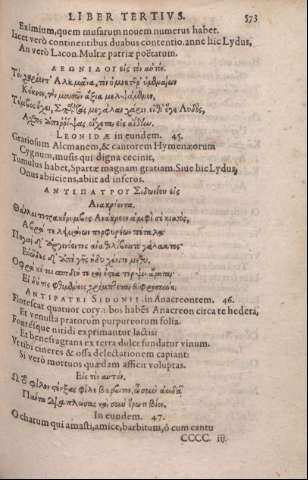 LIBER TERTIVS. 573
Eximium, quem musarum nouem numerus habet.
Iacet verò continentibus duabus contentio. anne hic Lydus,
An verò Lacon. Multæ patriæ poëtarum.
ΛΕΩΝΙΔΟΥ εἰς τὸν αὐτόν.
Τὸν χαρίεντ' Ἀλκμᾶνα, τὸν ὑμνητῆρ' ὑμεναίων
Κύκνον, τὸν μουσῶν ἄξια μελψάμενον,
Τύμβος ἔχει, Σπάρτας μεγάλαν χάριν, εἴθ' ὅγε Λυδὸς,
Ἄχθος ἀπορρίψας οἴχεται εἰς ἀΐδαν.
LEONIDÆ in eundem. 45.
Gratiosum Alcmanem, & cantorem Hymenæorum
Cygnum, musis qui digna cecinit,
Tumulus habet, Spartæ magnam gratiam. Siue hic Lydus,
Onus abiiciens, abiit ad inferos.
ΑΝΤΙΠΑΤΡΟΥ Σιδωνίου εἰς
Ἀνακρέοντα.
Θάλλοι τετρακόρυμβος Ἀνάκρεον ἀμφὶ σὲ κισσὸς,
πορφυρέων πέταλα
Πηγαὶ δ' ἀργινόεντος ἀναθλίβοιντο γάλακτος
Εὐῶδες δ' ἀπὸ γῆς ἡδὺ χέοιτο μέθυ.
Ὄφρα κέ τοι σποδιή τε καὶ ὀστέα τέρψιν ἄρηται
Εἰ δή τις φθιμένοις χρίμπτεται εὐφροσύνα.
ANTIPATRI SIDONII in Anacreontem. 46.
Florescat quatuor corymbos habẽs Anacreon circa te hedera,
Et venusta pratorum purpureorum folia.
Fontesque nitidi exprimantur lactis:
Et benefragrans ex terra dulce fundatur vinum.
Vt tibi cineres & ossa delectationem capiant:
Si verò mortuos quædam afficit voluptas.
Εἰς τὸν αὐτόν.
Ὦ τὸ φίλον στέρξας φίλε βάρβιτον, ὦ σὺν ἀοιδᾷ
Πάντα διαπλώσας καὶ σὺν ἔρωτι βίον.
In eundem. 47.
O charum qui amasti, amice, barbitum, ô cum cantu
CCCC iij